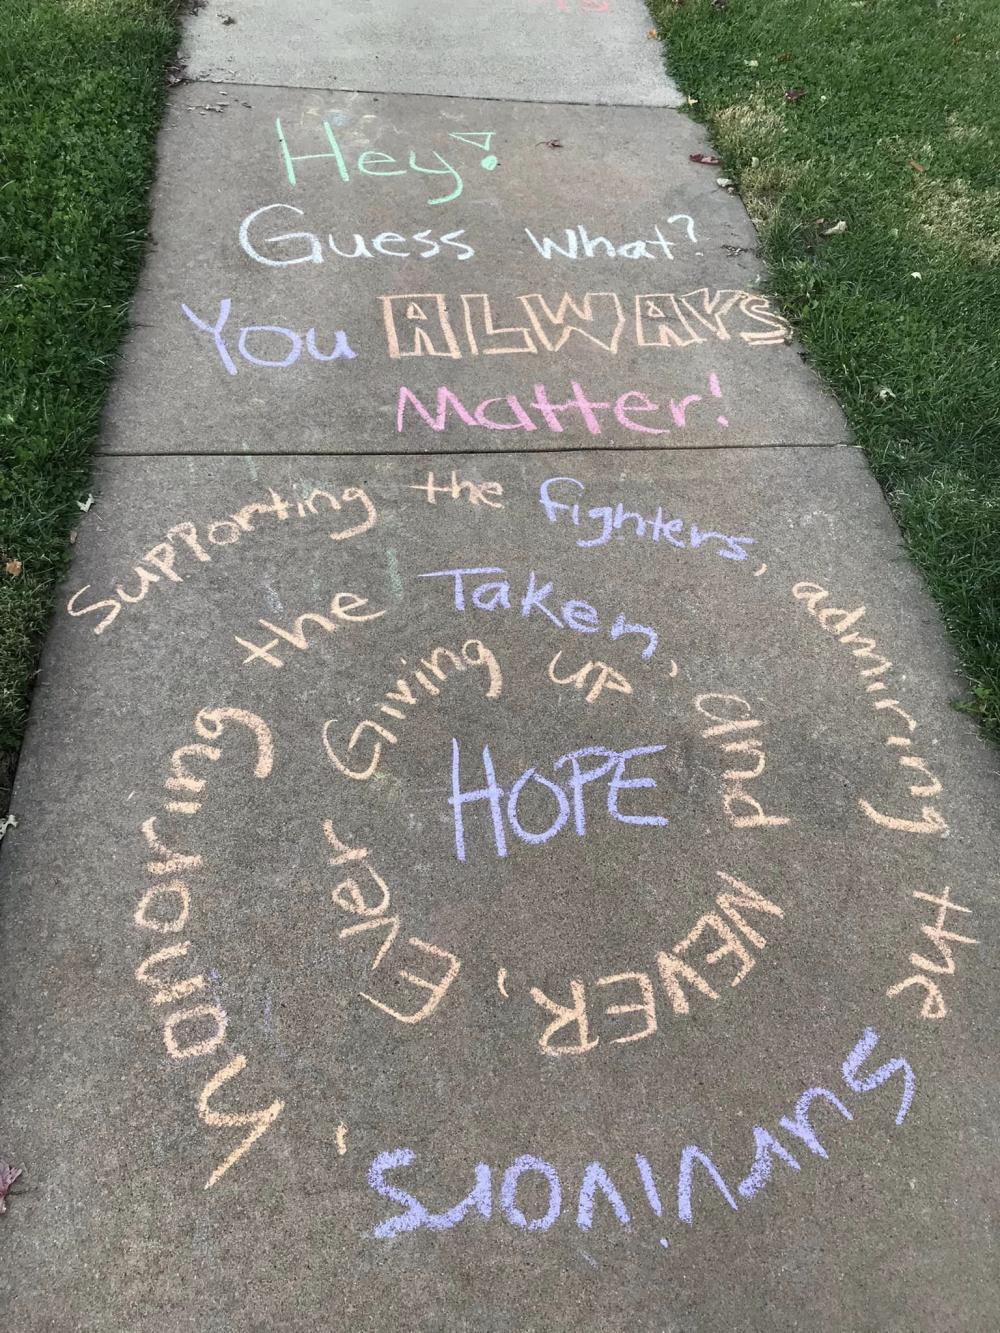 Hey!
Guess what?
You ALWAYS
Matter!
Supporting the fighters, admiring the survivors, honoring the Taken, and NEVER, Ever Giving up
HOPE